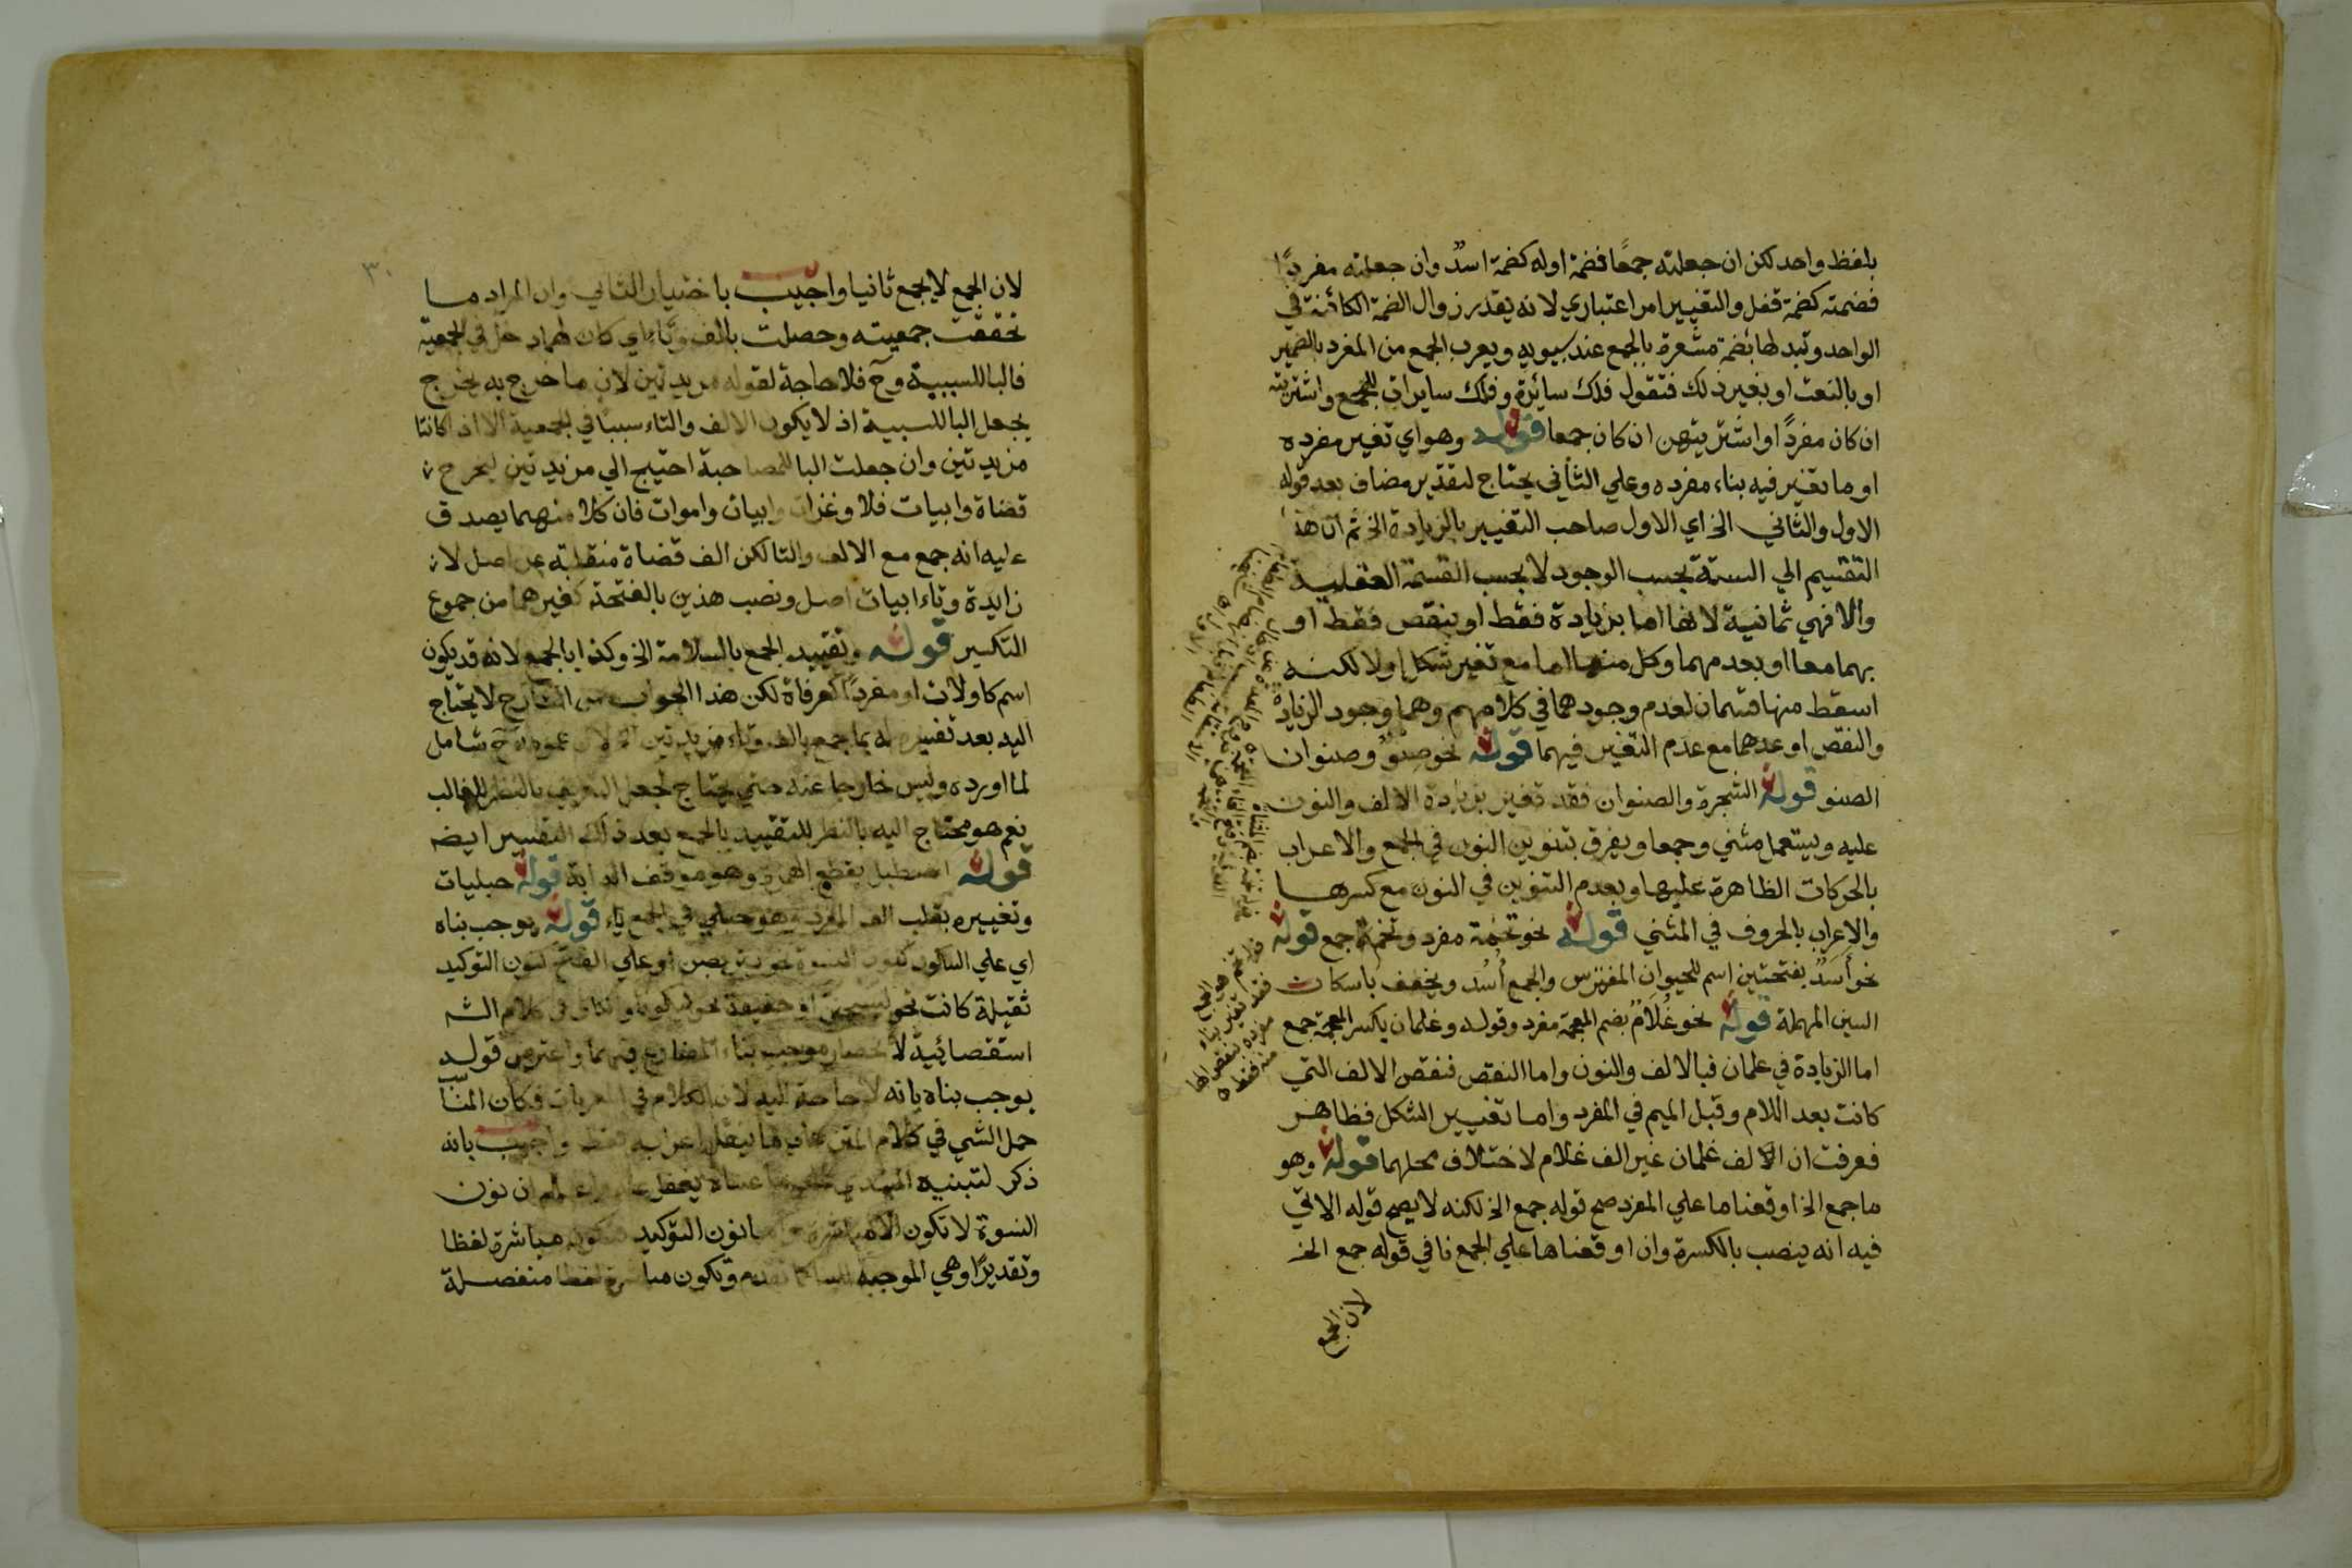 بلفظ واحد لكن ان جعلته جمعًا فضمة اوله كضمة اسدٌ وان جعلته مفردًا
فضمته كضمة قفل والتغيير امر اعتباري لانه يقدر زوال الضمة الكائنة في
الواحد وتبدلها بضمة مشعرة بالجمع عند سيبويه ويعرب الجمع من المفرد بالضمير
او بالنعت او بغير ذلك فتقول فلك سائرة وفلك سايرات للجمع واشتريته
ان كان مفردًا او اشتريتهن ان كان جمعا قوله وهو اي تغير مفرده
او ما تغير فيه بناء مفرده وعلي الثاني يحتاج لتقدير مضاف بعد قوله
الاول والثاني الخ اي الاول صاحب التغيير بالزيادة الخ ثم ان هذا
التقسيم الي الستة بحسب الوجود لا بحسب القسمة العقلية
والا فهي ثمانية لانها اما بزيادة فقط او بنقص فقط او
بهما معا او بعدمهما وكل منها اما مع تغير شكل او لا لكنه
اسقط منها قسمان لعدم وجودهما في كلامهم وهما وجود الزيادة
والنقص او عدهما مع عدم التغير فيهما قوله نحو صنوٌ وصنوان
الصنو قوله الشجرة والصنوان فقد تغير بزيادة الالف والنون
عليه ويستعمل مثني وجمعا ويفرق بتنوين النون في الجمع والاعراب
بالحركات الظاهرة عليها وبعدم التنوين في النون مع كسرها
والاعراب بالحروف في المثني قوله نحو تخمة مفرد وتخم جمع قوله
نحو أَسَدٌ بفتحتين اسم للحيوان المفترس والجمع أُسُد ويخفف باسكان
السين المهملة قوله نحو غُلَامٌ بضم المعجمة مفرد وقوله وغلمان بكسر المعجمة جمع
اما الزيادة في غلمان فبالالف والنون واما النقص فنقص الالف التي
كانت بعد اللام وقبل الميم في المفرد واما تغيير الشكل فظاهر
فعرفت ان الالف غلمان غير الف غلام لاختلاف محلهما قوله وهو
ما جمع الخ اوقعنا ما علي المفرد صح قوله جمع الخ لكنه لا يصح قوله الاتي
فيه انه ينصب بالكسرة وان اوقعناها علي الجمع نافي قوله جمع الخ
لان الجمع
٣٠
لان الجمع لا يجمع ثانيا واجيب باختيار الثاني وان المراد ما
تحققت جمعيته وحصلت بالف وتاء اي كان لهما دخل في الجمعية
فالبا للسببية وح فلا حاجة لقوله مزيدتين لان ما خرج به يخرج
بجعل البا للسببية اذ لا يكون الالف والتاء سببا في الجمعية الا اذ كانتا
مزيدتين وان جعلت البا للمصاحبة احتيج الي مزيدتين ليخرج نحو
قضاة وابيات فلا وغزات وابيات واموات فان كلا منهما يصدق
عليه انه جمع مع الالف والتا لكن الف قضاة منقلبة عن اصل لا
زايدة وتاء ابيات اصل ونصب هذين بالفتحة كغيرهما من جموع
التكسير قوله وتقييد الجمع بالسلامة الخ وكذا بالجمع لانه قد يكون
اسم كاولات او مفردًا كعرفاة لكن هذا الجواب من الشارح لا يحتاج
اليه بعد تفسيره له بما جمع بالف وتاء مزيدتين شامل
لما اورده وليس خارجا عنه حتي يحتاج لجعل التعريف بالنظر للغالب
نعم هو محتاج اليه بالنظر للتقييد بالجمع بعد ذلك التفسير ايضه
قوله اصطبل بقطع الهمزة وهو موقف الدابة قوله حبليات
وتغييره بقلب الف المفرد وهو حبلي في الجمع ياء قوله يوجب بناه
اي علي السكون كنون النسوة نحو يتربصن او علي الفتح كنون التوكيد
ثقيلة كانت نحو ليسجنن او خفيفة نحو ليكونا والكاف في كلام الشم
استقصائية لانحصار موجب بناء المضارع فيهما واعترض قوله
يوجب بناه بانه لا حاجة اليه لان الكلام في المعربات فكان المناسب
حمل الشي في كلام المتن علي ما ينقل اعرابه فقط واجيب بانه
ذكر لتنبيه المبتدي ان نون
النسوة لا تكون الا مباشرة واما نون التوكيد فتكون مباشرة لفظا
وتقديرًا وهي الموجبة للبنا كما تقدم وتكون مباشرة لفظا منفصلة